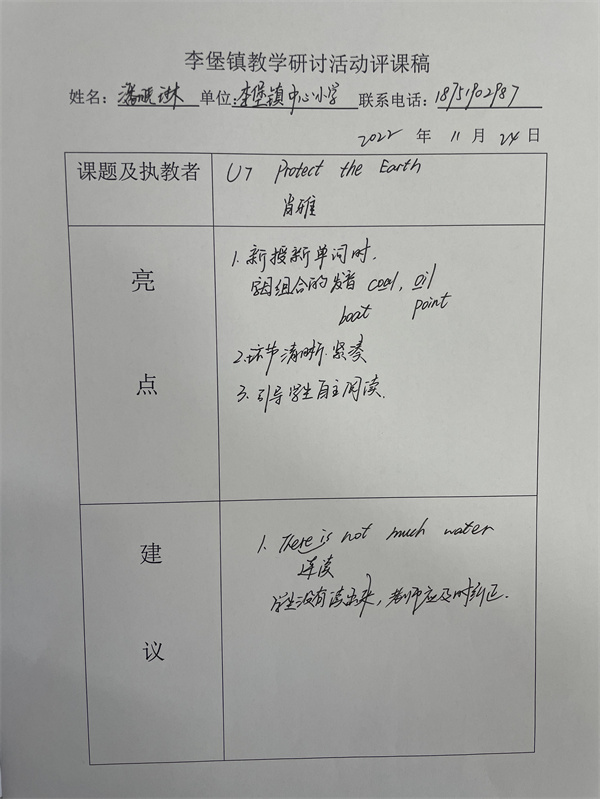 李堡镇教学研讨活动评课稿
姓名：潘 琳 单位：李堡镇中心小学 联系电话：18751902987
2022 年 11 月 24 日
课题及执教者
U7 Protect the Earth
肖雅
亮点
1. 新授新单词时，
字母组合的发音 coal, oil
boat point
2. 环节清晰、紧凑
3. 引导学生自主阅读.
建议
1. There is not much water
连读
学生没有读出来，老师应及时纠正.